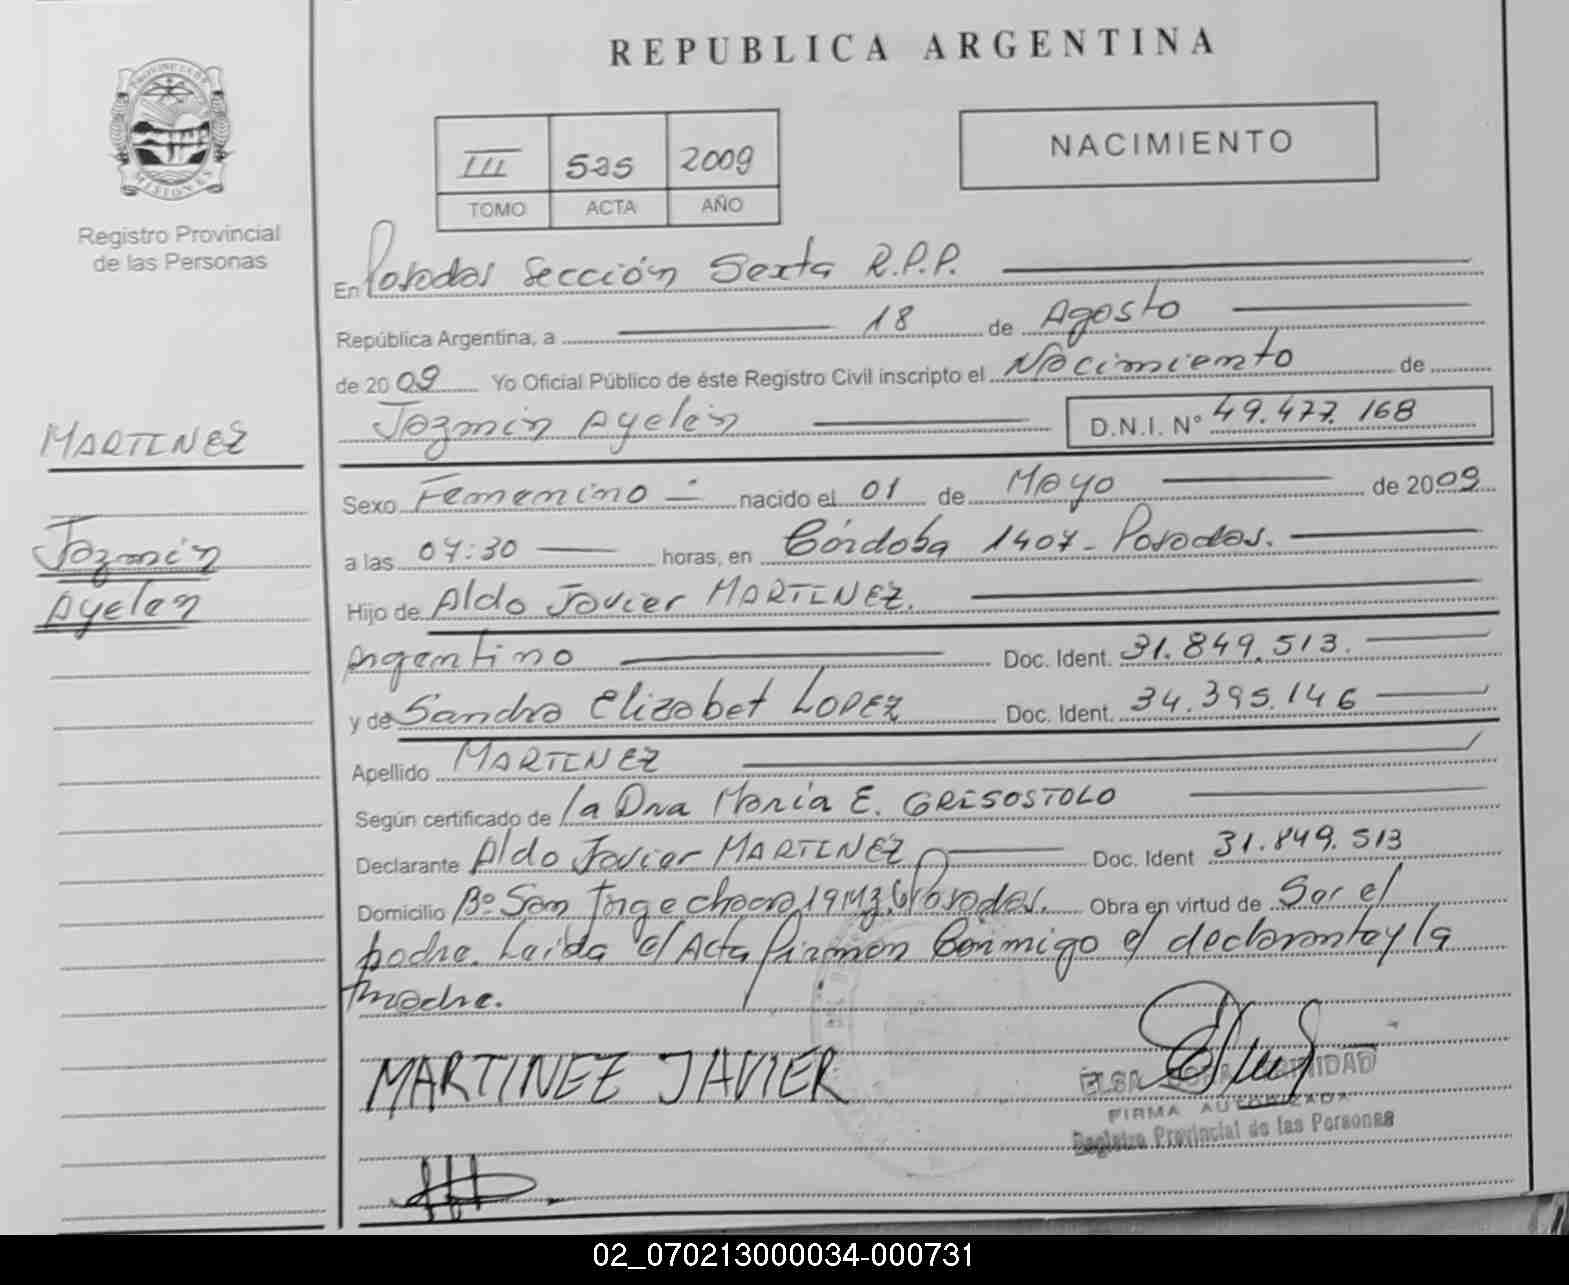 REPUBLICA ARGENTINA
PROVINCIA DE
MISIONES
Registro Provincial
de las Personas
III 525 2009
TOMO ACTA AÑO
NACIMIENTO
En Posadas Sección Sexta R.P.P.
República Argentina, a 18 de Agosto
de 2009 Yo Oficial Público de éste Registro Civil inscripto el Nacimiento de
Jazmin Ayelén D.N.I. Nº 49.477.168
MARTINEZ
Jazmin
Ayelen
Sexo Femenino nacido el 01 de Mayo de 2009
a las 07:30 horas, en Córdoba 1407 - Posadas.
Hijo de Aldo Javier MARTINEZ.
Argentino Doc. Ident. 31.849.513.
y de Sandra Elizabet LOPEZ Doc. Ident. 34.395.146
Apellido MARTINEZ
Según certificado de la Dra María E. GRISOSTOLO
Declarante Aldo Javier MARTINEZ Doc. Ident 31.849.513
Domicilio Bº San Jorge chacra 19 Mz 6 Posadas. Obra en virtud de Ser el
padre. Leida el Acta firman Conmigo el declarante y la
madre.
MARTINEZ JAVIER
ELSA
FIRMA AUTORIZADA
Registro Provincial de las Personas
02_070213000034-000731